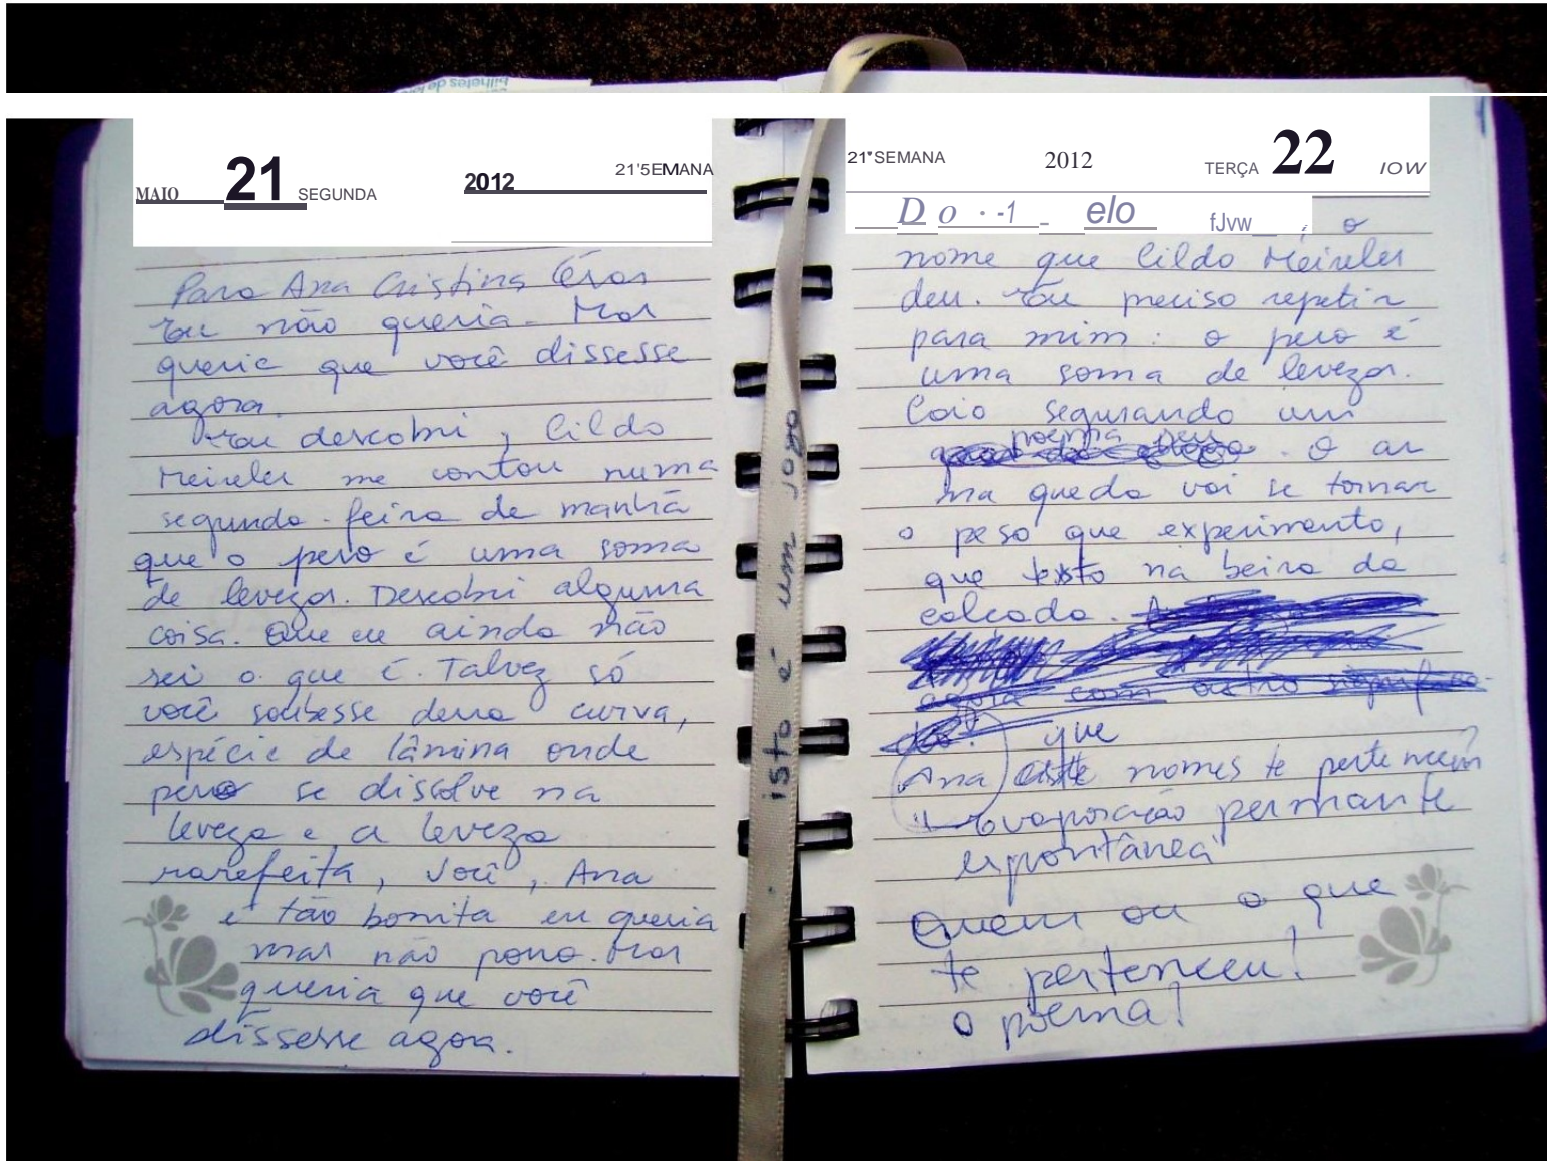 bilhetes de
MAIO 21 SEGUNDA 2012 21'5EMANA
Para Ana Cristina César
Eu não queria. Mas
queria que você dissesse
agora.
Eu descobri, Cildo
Meireles me contou numa
segunda-feira de manhã
que o peso é uma soma
de levezas. Descobri alguma
coisa. Que eu ainda não
sei o que é. Talvez só
você soubesse dessa curva,
espécie de lâmina onde
peso se dissolve na
leveza e a leveza
rarefeita, você, Ana
é tão bonita eu queria
mas não posso. Mas
queria que você
dissesse agora.
isto é um jogo
21ª SEMANA 2012 TERÇA 22 IOW
D o · -1 _ elo fJvw
, o
nome que Cildo Meireles
deu. Eu preciso repetir
para mim: o peso é
uma soma de levezas.
Caio segurando um
poema seu
. O ar
na queda vai se tornar
o peso que experimento,
que testo na beira da
calçada.
agora com outro significa-
do.
que
Ana este nomes te pertencem?
Evaporação permante
espontânea
Quem ou o que
te pertenceu!
o poema!